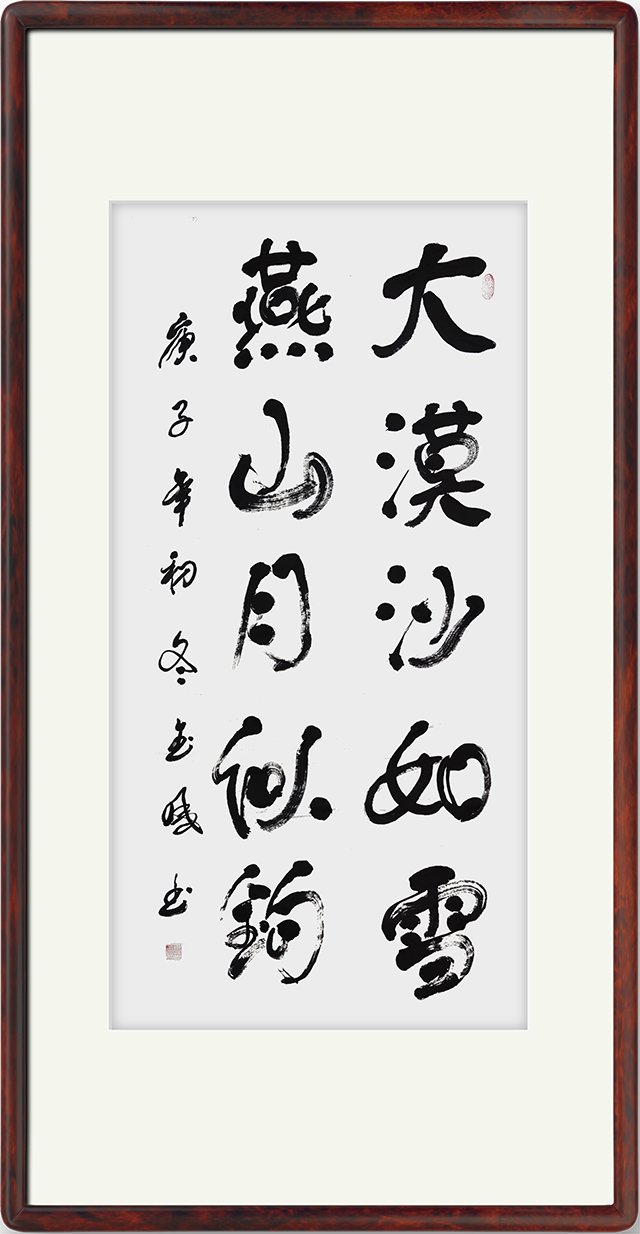 大漠沙如雪
燕山月似钩
庚子年初冬